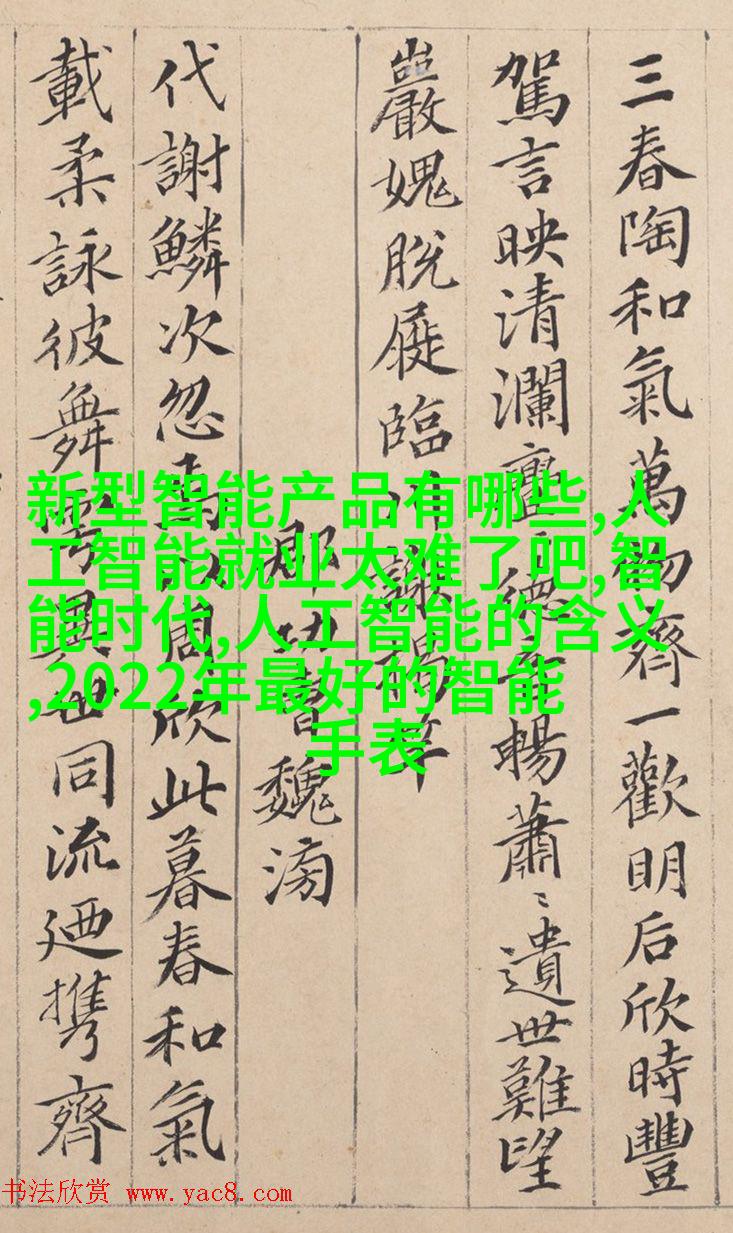 三春陶和氣萬物齊一歡明后欣時豐
駕言映清瀾亹〻德音暢蕭〻遺世難望
巖愧脫屣臨川謝揭竿
郡功曹魏滂
代謝鱗次忽焉以周欣此暮春和氣
載柔詠彼舞雩異世同流迺携齊
新型智能产品有哪些,人
工智能就业太难了吧,智
能时代,人工智能的含义
,2022年最好的智能
手表
书法欣赏 www.yac8.com